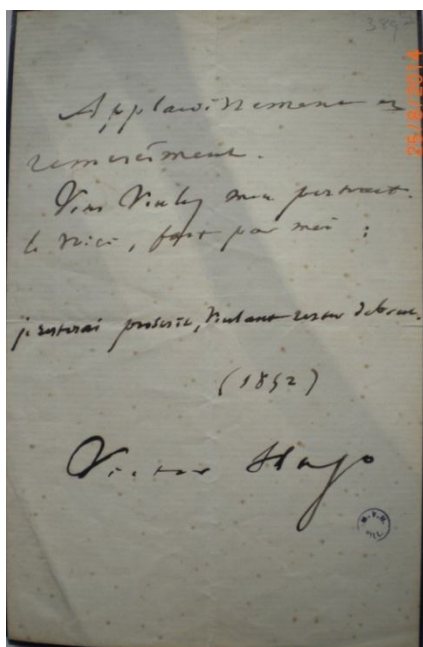 3897
25/8/2014
Applaudissement et
remerciment.
Vous voulez mon portrait.
le voici, fait par moi :
je resterai proscrit, voulant rester debout.
(1852)
Victor Hugo
M. V. H.